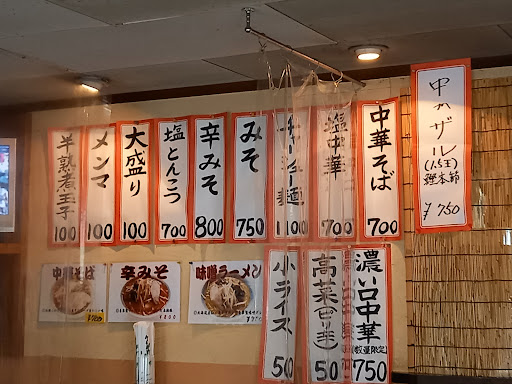 中華ザル
(1.5玉)
鰹本節
¥750
中華そば
700
塩中華
700
チャーシュー麺
1100
みそ
750
辛みそ
800
塩とんこつ
700
大盛り
100
メンマ
100
半熟煮玉子
100
濃い口中華
(数量限定)
750
高菜
50
小ライス
50
味噌ラーメン
辛みそ
中華そば